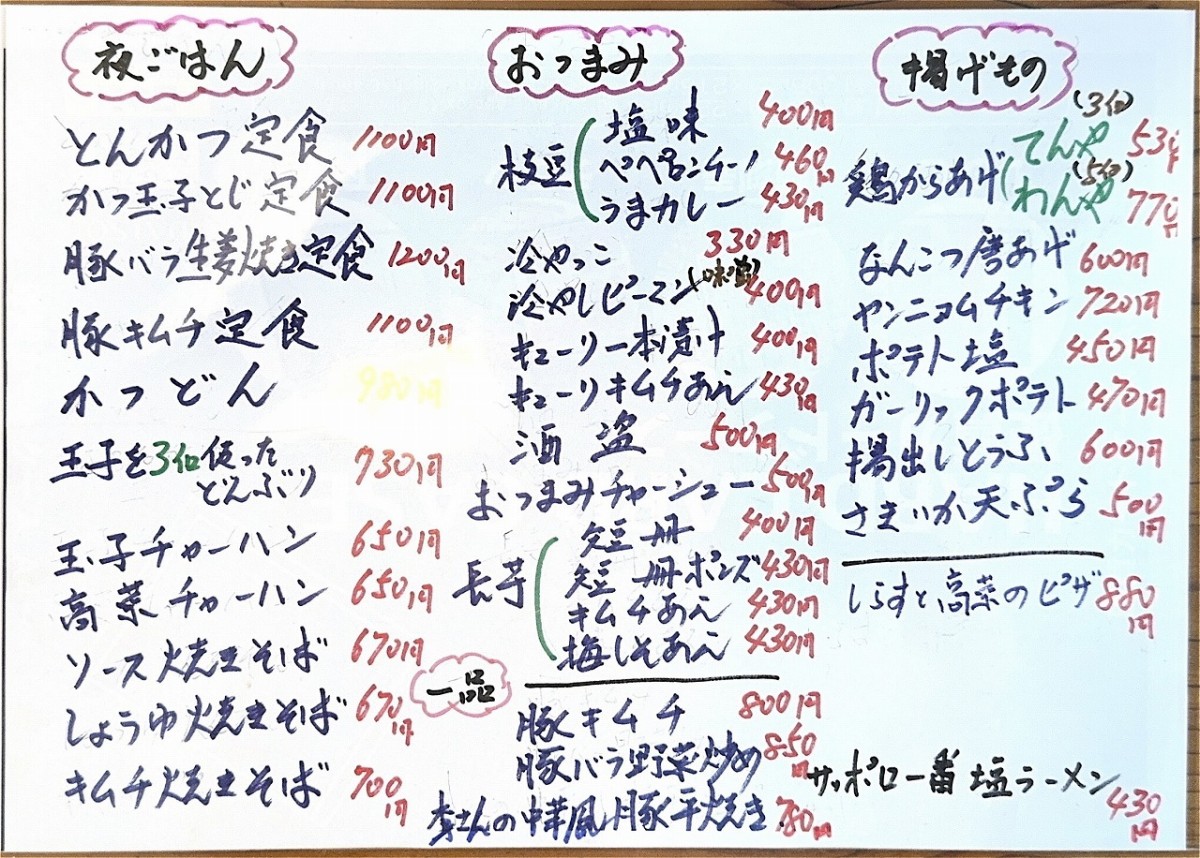 夜ごはん
とんかつ定食 1100円
かつ玉子とじ定食 1100円
豚バラ生姜焼き定食 1200円
豚キムチ定食 1100円
かつどん 980円
玉子を3個使った
どんぶり 730円
玉子チャーハン 650円
高菜チャーハン 650円
ソース焼きそば 670円
しょうゆ焼きそば 670円
キムチ焼きそば 700円
おつまみ
枝豆
塩味 400円
ペペロンチーノ 460円
うまカレー 430円
冷やっこ 330円
冷やしピーマン 400円
キューリー本漬け 400円
キューリキムチあえ 430円
酒盗 500円
おつまみチャーシュー 500円
長芋
短冊 400円
短冊ポンズ 430円
キムチあえ 430円
梅しそあえ 430円
一品
豚キムチ 800円
豚バラ野菜炒め 850円
李さんの中華風豚平焼き 780円
揚げもの
鶏からあげ
(3個)
てんや 530円
(5個)
わんや 770円
なんこつ唐あげ 600円
ヤンニョムチキン 720円
ポテト塩 450円
ガーリックポテト 470円
揚出しとうふ 600円
さきいか天ぷら 500円
しらすと高菜のピザ 880円
サッポロ一番塩ラーメン 430円